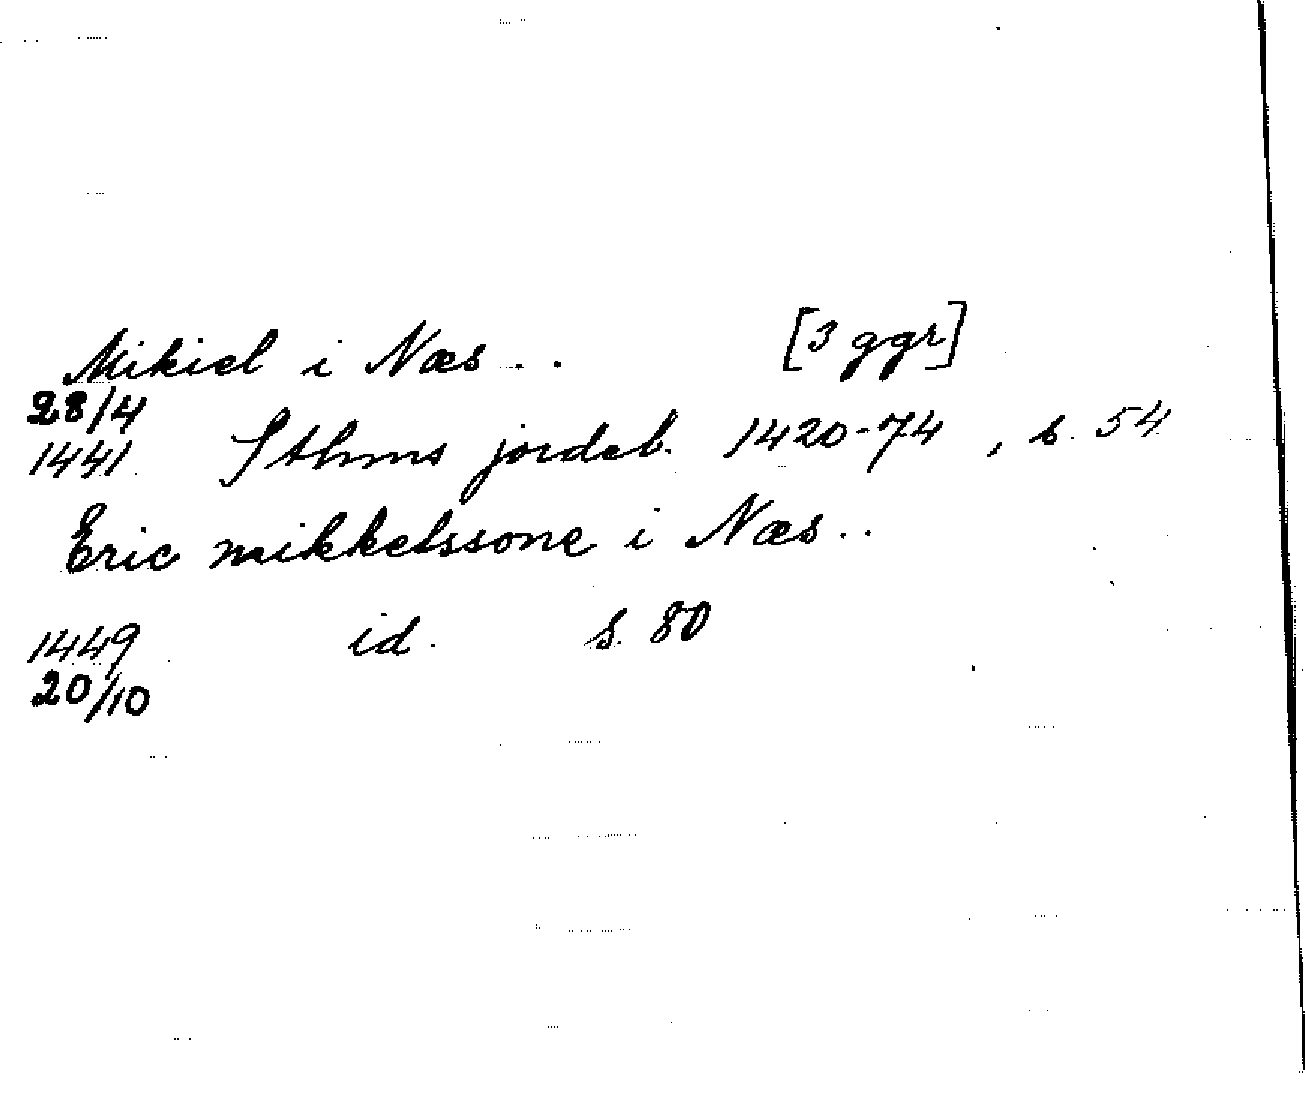 Mikiel i Næs .. [3 ggr]
28/4
1441 Sthms jordeb. 1420-74, s. 54
Eric mikkelssone i Næs ..
1449 id. s. 80
20/10